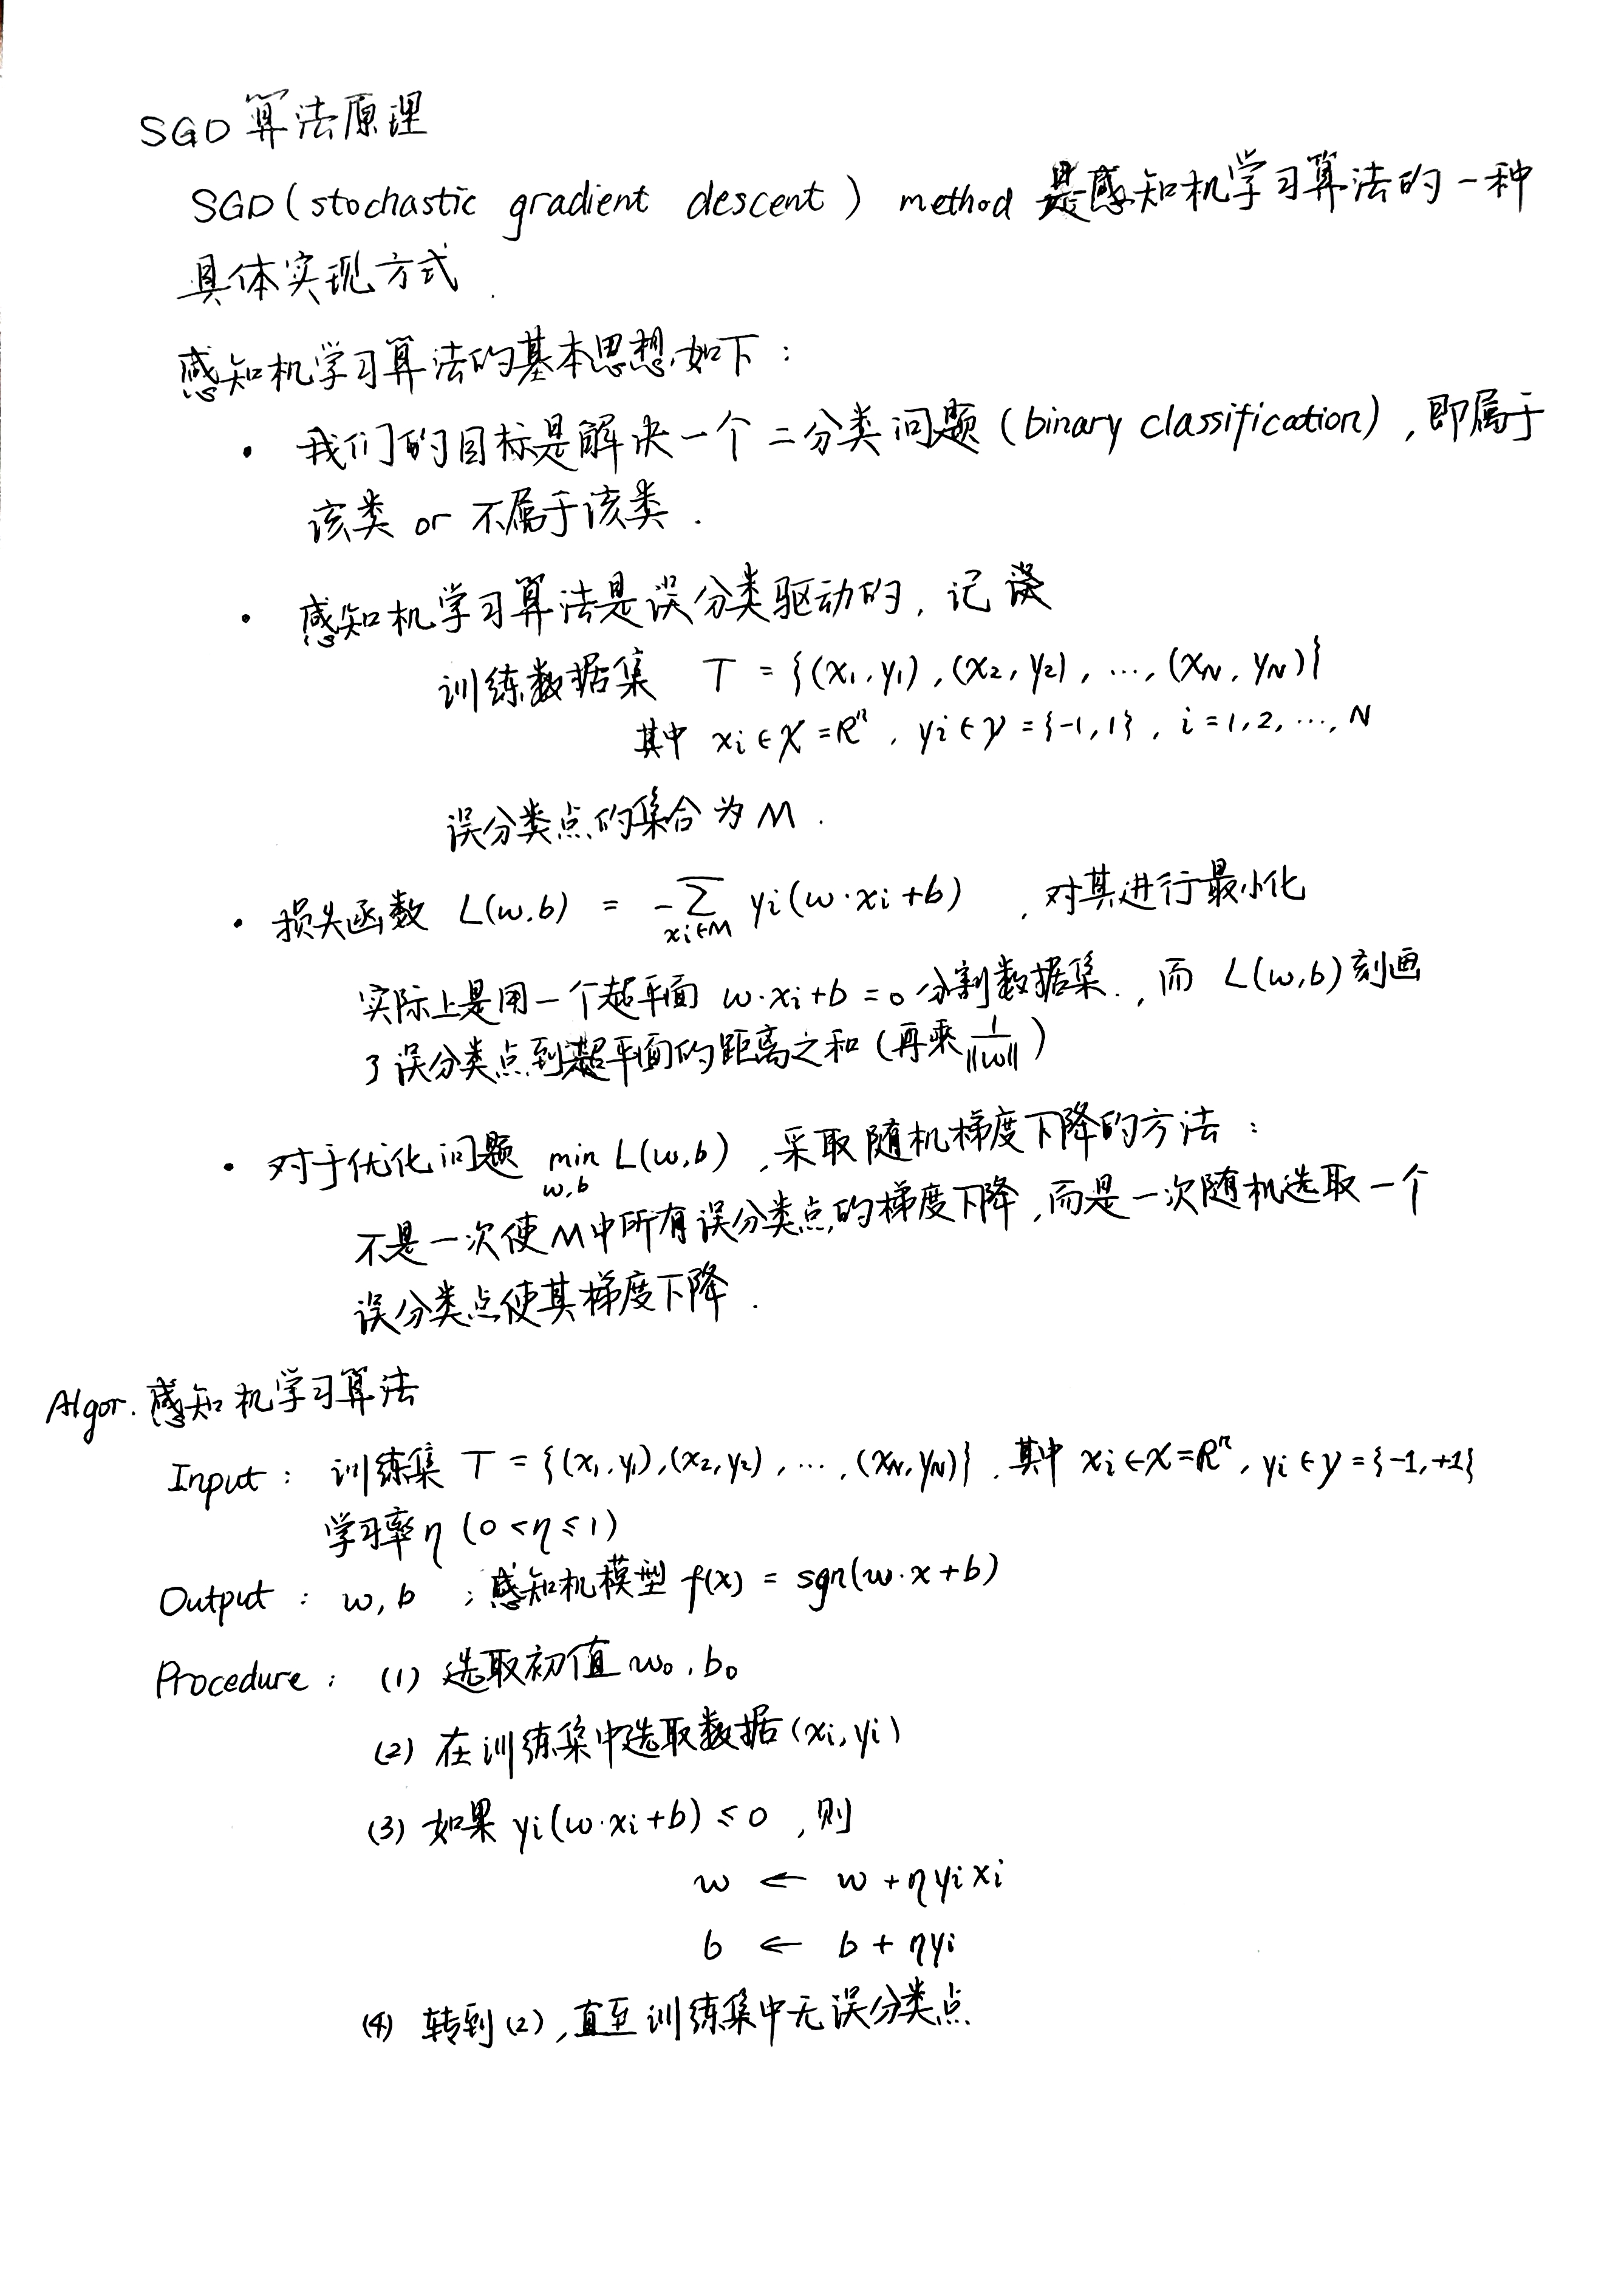 SGD 算法原理
SGD (stochastic gradient descent) method 是感知机学习算法的一种
具体实现方式.
感知机学习算法的基本思想如下:
· 我们的目标是解决一个二分类问题 (binary classification), 即属于
该类 or 不属于该类.
· 感知机学习算法是误分类驱动的, 记误
训练数据集 T = {(x₁, y₁), (x₂, y₂), ..., (x_N, y_N)}
其中 xᵢ ∈ X = Rⁿ, yᵢ ∈ Y = {-1, 1}, i = 1, 2, ..., N
误分类点的集合为 M.
· 损失函数 L(w,b) = -∑_{xᵢ∈M} yᵢ(w·xᵢ+b), 对其进行最小化
实际上是用一个超平面 w·xᵢ+b=0 分割数据集, 而 L(w,b) 刻画
了误分类点到超平面的距离之和 (再乘 1/||w||)
· 对于优化问题 min_{w,b} L(w,b), 采取随机梯度下降的方法:
不是一次使 M 中所有误分类点的梯度下降, 而是一次随机选取一个
误分类点使其梯度下降.
Algor. 感知机学习算法
Input: 训练集 T = {(x₁, y₁), (x₂, y₂), ..., (x_N, y_N)}, 其中 xᵢ ∈ X = Rⁿ, yᵢ ∈ Y = {-1, +1}
学习率 η (0 < η ≤ 1)
Output: w, b; 感知机模型 f(x) = sgn(w·x+b)
Procedure: (1) 选取初值 w₀, b₀
(2) 在训练集中选取数据 (xᵢ, yᵢ)
(3) 如果 yᵢ(w·xᵢ+b) ≤ 0, 则
w ← w + ηyᵢxᵢ
b ← b + ηyᵢ
(4) 转到 (2), 直至训练集中无误分类点